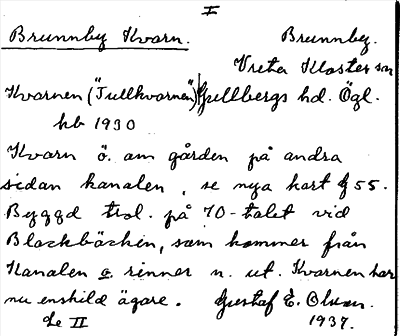 I
Brunnby Kvarn. Brunnby.
Vreta Kloster sn
Kvarnen ("Tullkvarnen") Gullbergs hd. Ögl.
kb 1930
Kvarn ö. om gården på andra
sidan kanalen, se nya kart § 55.
Byggd trol. på 70-talet vid
Blackbäcken, som kommer från
Kanalen o. rinner n. ut. Kvarnen har
nu enskild ägare. Gustaf E. Olsson.
Se II 1937.